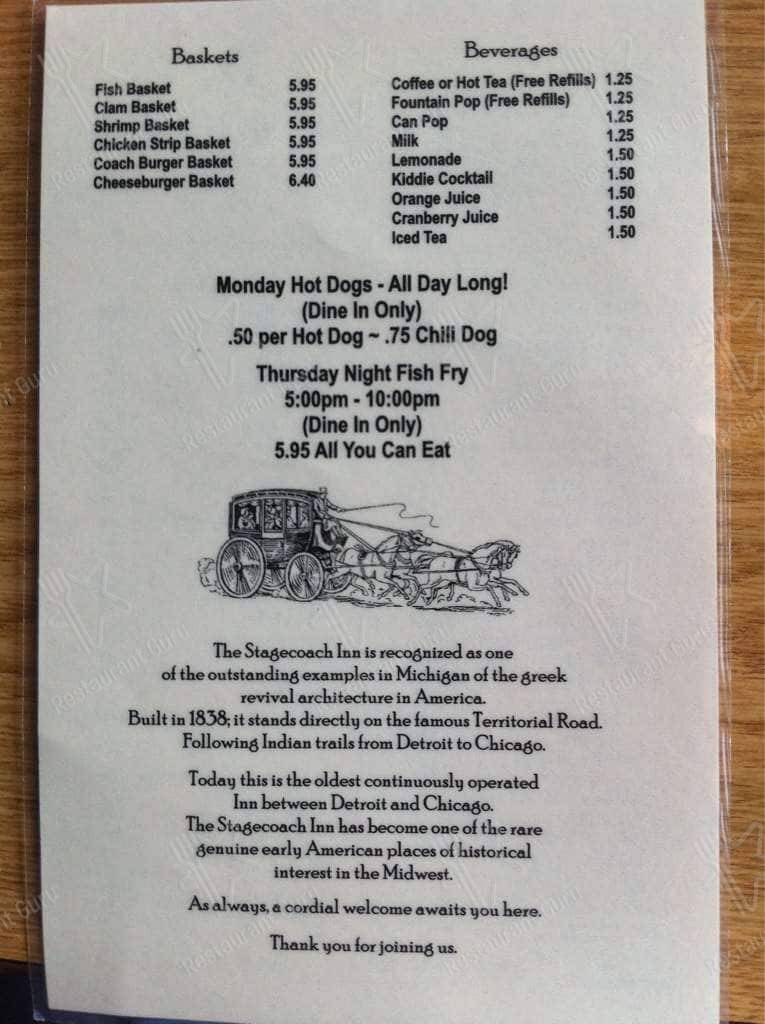 Baskets
Fish Basket 5.95
Clam Basket 5.95
Shrimp Basket 5.95
Chicken Strip Basket 5.95
Coach Burger Basket 5.95
Cheeseburger Basket 6.40
Beverages
Coffee or Hot Tea (Free Refills) 1.25
Fountain Pop (Free Refills) 1.25
Can Pop 1.25
Milk 1.25
Lemonade 1.50
Kiddie Cocktail 1.50
Orange Juice 1.50
Cranberry Juice 1.50
Iced Tea 1.50
Monday Hot Dogs - All Day Long!
(Dine In Only)
.50 per Hot Dog ~ .75 Chili Dog
Thursday Night Fish Fry
5:00pm - 10:00pm
(Dine In Only)
5.95 All You Can Eat
The Stagecoach Inn is recognized as one
of the outstanding examples in Michigan of the greek
revival architecture in America.
Built in 1838; it stands directly on the famous Territorial Road.
Following Indian trails from Detroit to Chicago.
Today this is the oldest continuously operated
Inn between Detroit and Chicago.
The Stagecoach Inn has become one of the rare
genuine early American places of historical
interest in the Midwest.
As always, a cordial welcome awaits you here.
Thank you for joining us.
Restaurant Guru